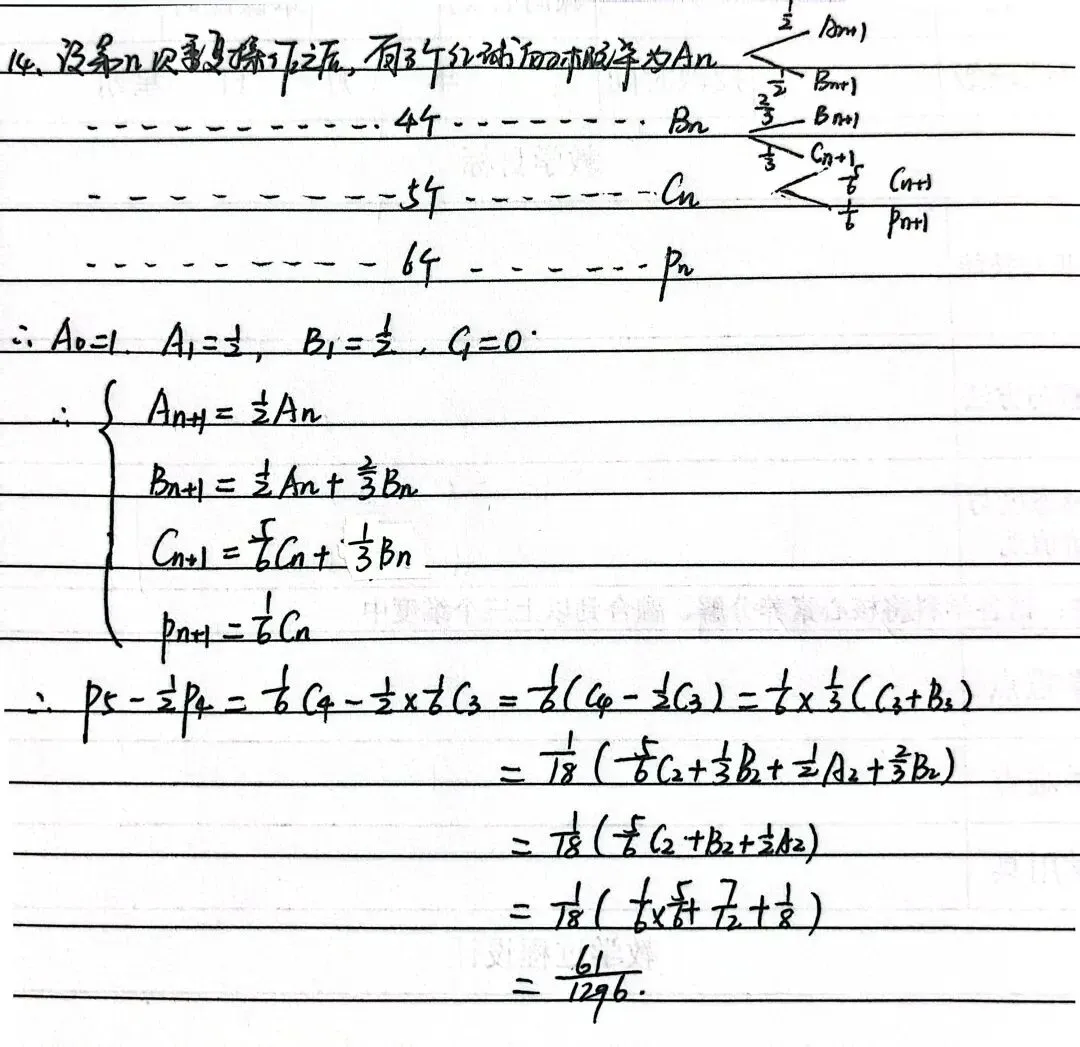 14、设第n次重复操作之后,有3个红球的概率为An 1/2 An+1 1/2 Bn+1
----------- 4个 -------- Bn 2/3 Bn+1 1/3 Cn+1
-------- 5个 ------- Cn 5/6 Cn+1 1/6 Pn+1
---------- 6个 ------- Pn
∴ A0=1. A1=1/2, B1=1/2, C1=0.
∴ { An+1 = 1/2 An
Bn+1 = 1/2 An + 2/3 Bn
Cn+1 = 5/6 Cn + 1/3 Bn
Pn+1 = 1/6 Cn
∴ P5 - 1/2 P4 = 1/6 C4 - 1/2 × 1/6 C3 = 1/6 (C4 - 1/2 C3) = 1/6 × 1/3 (C3 + B3)
= 1/18 (5/6 C2 + 1/3 B2 + 1/2 A2 + 2/3 B2)
= 1/18 (5/6 C2 + B2 + 1/2 A2)
= 1/18 (1/6 × 5/6 + 7/12 + 1/8)
= 61/1296.